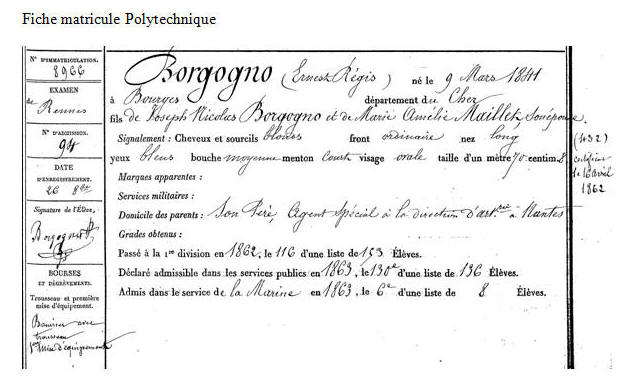 Fiche matricule Polytechnique
N° D'IMMATRICULATION.
8966
EXAMEN
de Rennes
N° D'ADMISSION.
94
DATE
D'ENREGISTREMENT.
26 8bre
Signature de l'Élève.
Borgogno
BOURSES
ET DÉGRÈVEMENTS.
Trousseau et première
mise d'équipement.
Boursier avec
trousseau
1ère Mise d'équipement
Borgogno (Ernest Régis) né le 9 Mars 1841
à Bourges département du Cher
fils de Joseph Nicolas Borgogno et de Marie Amélie Maillet, son épouse.
Signalement : Cheveux et sourcils blonds front ordinaire nez long
yeux bleus bouche moyenne menton court visage ovale taille d'un mètre 70 centim. 8
Marques apparentes :
Services militaires :
Domicile des parents : Son Père, Agent spécial à la direction d'art.rie à Nantes
Grades obtenus :
Passé à la 1re division en 1862, le 116 d'une liste de 153 Élèves.
Déclaré admissible dans les services publics en 1863, le 130e d'une liste de 136 Élèves.
Admis dans le service de la Marine en 1863, le 6e d'une liste de 8 Élèves.
(132)
le 16 avril
1862